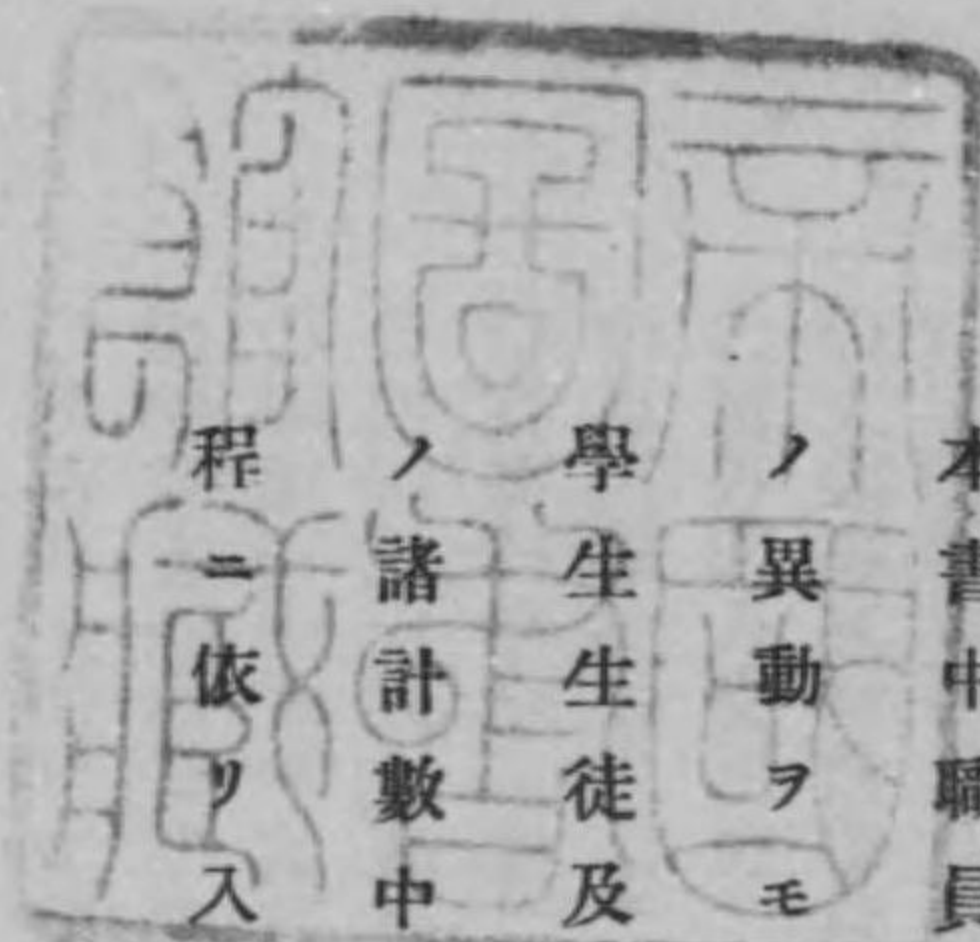 本書中職員
ノ異動ヲモ
學生生徒及
ノ諸計數中
程ニ依リ入